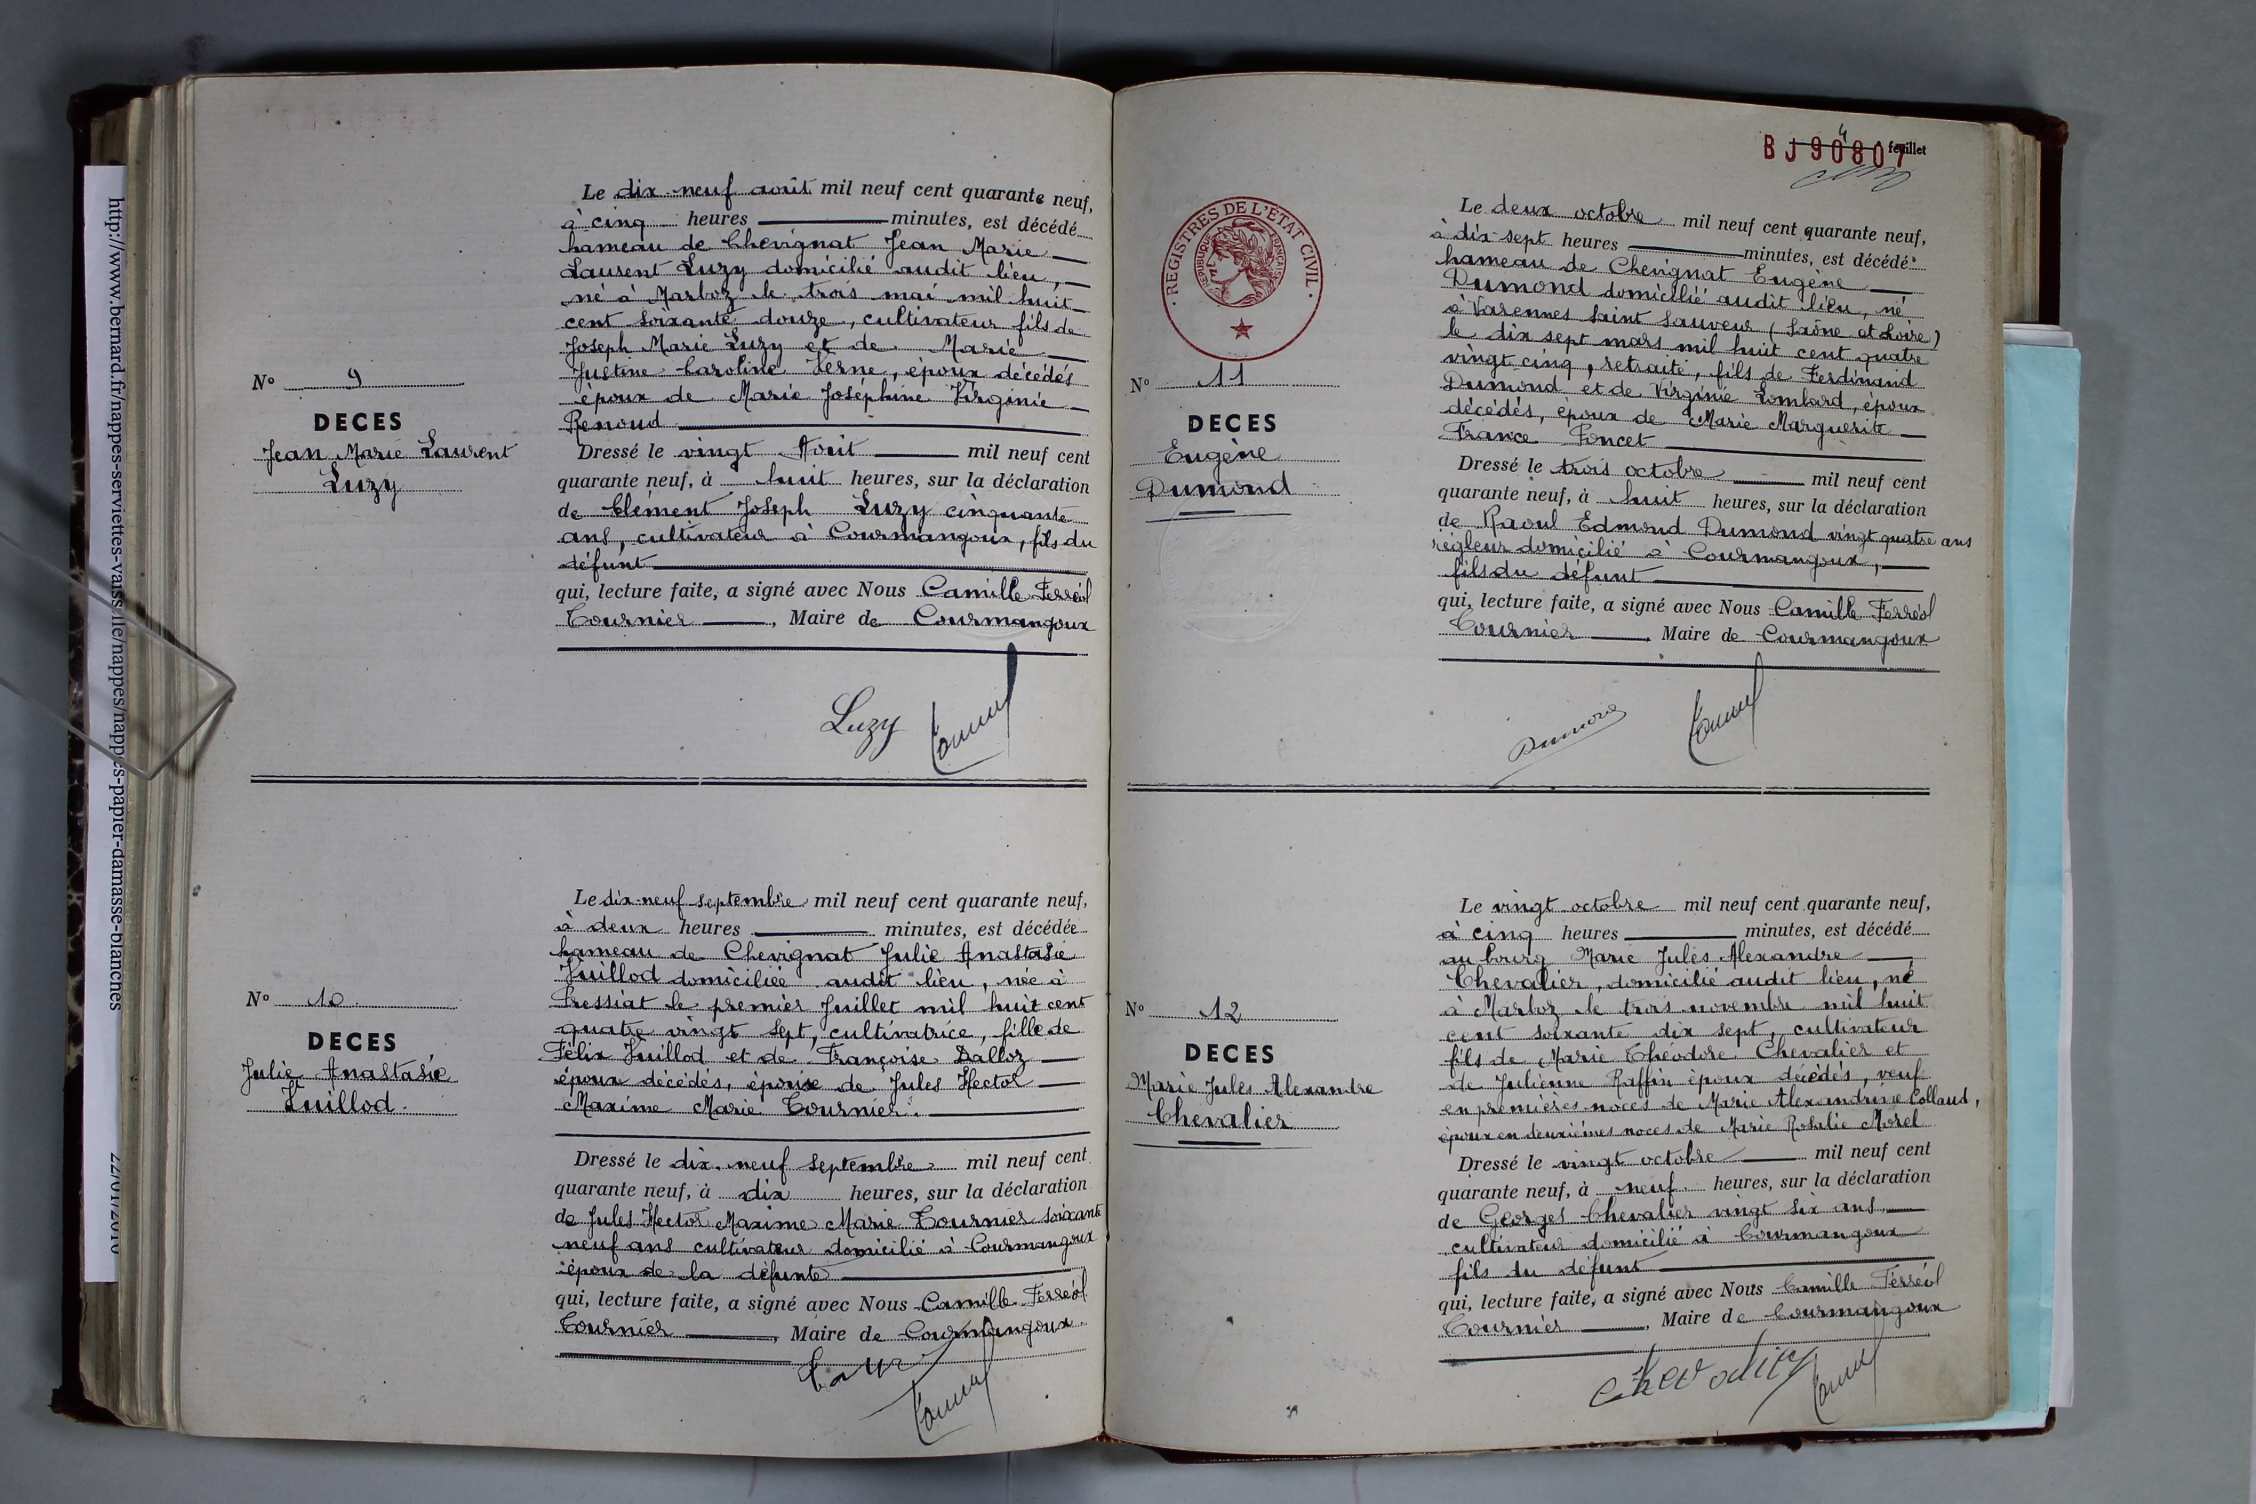 Le dix neuf août mil neuf cent quarante neuf,
à cinq heures minutes, est décédé
hameau de Chevignat Jean Marie
Laurent Luzy domicilié audit lieu,
né à Marboz le trois mai mil huit
cent soixante douze, cultivateur fils de
Joseph Marie Luzy et de Marie
Justine Caroline Verne, époux décédés
époux de Marie Joséphine Virginie
Renoud
Nº 9
DECES
Jean Marie Laurent
Luzy
Dressé le vingt Août mil neuf cent
quarante neuf, à huit heures, sur la déclaration
de Clément Joseph Luzy cinquante
ans, cultivateur à Courmangoux, fils du
défunt
qui, lecture faite, a signé avec Nous Camille Ferréol
Tournier, Maire de Courmangoux
Luzy
Le dix-neuf septembre mil neuf cent quarante neuf,
à deux heures minutes, est décédée
hameau de Chevignat Julie Anastasie
Vuillod domiciliée audit lieu, née à
Pressiat le premier Juillet mil huit cent
quatre vingt sept, cultivatrice, fille de
Félix Vuillod et de Françoise Dalloz
époux décédés, épouse de Jules Hector
Maxime Marie Tournier.
Nº 10
DECES
Julie Anastasie
Vuillod.
Dressé le dix-neuf septembre mil neuf cent
quarante neuf, à dix heures, sur la déclaration
de Jules Hector Maxime Marie Tournier soixante
neuf ans cultivateur domicilié à Courmangoux
époux de la défunte
qui, lecture faite, a signé avec Nous Camille Ferréol
Tournier, Maire de Courmangoux.
BJ90807
4 feuillet
REGISTRES DE L'ÉTAT CIVIL
RÉPUBLIQUE FRANÇAISE
Le deux octobre mil neuf cent quarante neuf,
à dix-sept heures minutes, est décédé
hameau de Chevignat Eugène
Dumond domicilié audit lieu, né
à Varennes Saint Sauveur (Saône et Loire)
le dix sept mars mil huit cent quatre
vingt cinq, retraité, fils de Ferdinand
Dumond et de Virginie Lombard, époux
décédés, époux de Marie Marguerite
France Poncet
Nº 11
DECES
Eugène
Dumond
Dressé le trois octobre mil neuf cent
quarante neuf, à huit heures, sur la déclaration
de Raoul Edmond Dumond vingt quatre ans
régleur domicilié à Courmangoux,
fils du défunt
qui, lecture faite, a signé avec Nous Camille Ferréol
Tournier, Maire de Courmangoux
Dumond
Le vingt octobre mil neuf cent quarante neuf,
à cinq heures minutes, est décédé
au bourg Marie Jules Alexandre
Chevalier, domicilié audit lieu, né
à Marboz le trois novembre mil huit
cent soixante dix sept, cultivateur
fils de Marie Théodore Chevalier et
de Julienne Raffin époux décédés, veuf
en premières noces de Marie Alexandrine Collaud,
époux en deuxièmes noces de Marie Rosalie Morel
Nº 12
DECES
Marie Jules Alexandre
Chevalier
Dressé le vingt octobre mil neuf cent
quarante neuf, à neuf heures, sur la déclaration
de Georges Chevalier vingt six ans
cultivateur domicilié à Courmangoux
fils du défunt
qui, lecture faite, a signé avec Nous Camille Ferréol
Tournier, Maire de Courmangoux
Chevalier